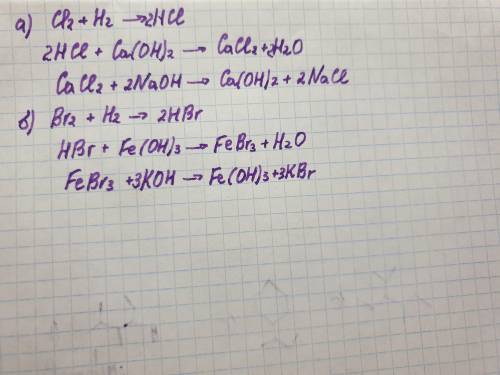 а) Cl₂ + H₂ → 2HCl
2HCl + Ca(OH)₂ → CaCl₂ + 2H₂O
CaCl₂ + 2NaOH → Ca(OH)₂ + 2NaCl
б) Br₂ + H₂ → 2HBr
HBr + Fe(OH)₃ → FeBr₃ + H₂O
FeBr₃ + 3KOH → Fe(OH)₃ + 3KBr